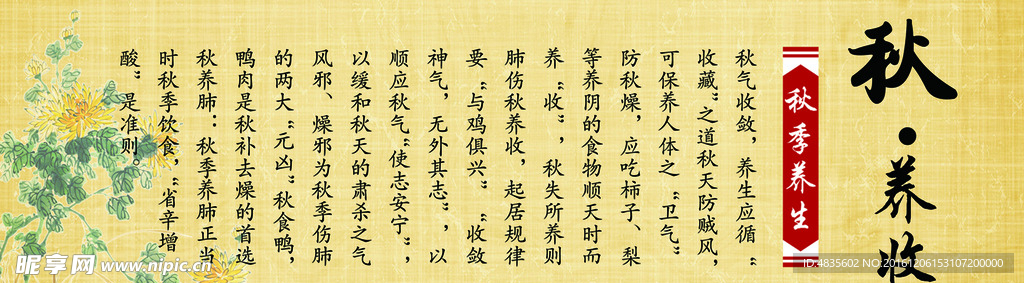 秋·养收
秋季养生
秋气收敛，养生应循“
收藏”之道秋天防贼风，
可保养人体之“卫气”
防秋燥，应吃柿子、梨
等养阴的食物顺天时而
养“收”，秋失所养则
肺伤秋养收，起居规律
要“与鸡俱兴”“收敛
神气，无外其志”，以
顺应秋气“使志安宁”，
以缓和秋天的肃杀之气
风邪、燥邪为秋季伤肺
的两大“元凶”秋食鸭，
鸭肉是秋补去燥的首选
秋养肺：秋季养肺正当
时秋季饮食，“省辛增
酸”是准则。
昵享网 www.nipic.cn
ID:4835602 NO:20161206153107200000